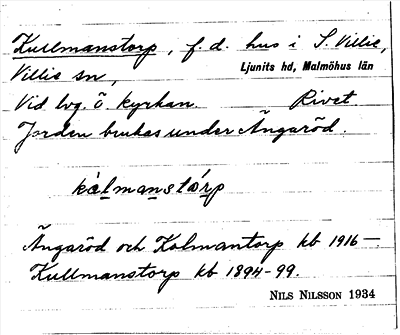 Kullmanstorp, f. d. hus i S. Villie,
Villie sn, Ljunits hd, Malmöhus län
Vid lvg. ö. kyrkan. Rivet.
Jorden brukas under Ängaröd.
Ängaröd och Kolmantorp kb 1916—
Kullmanstorp kb 1894-99.
NILS NILSSON 1934